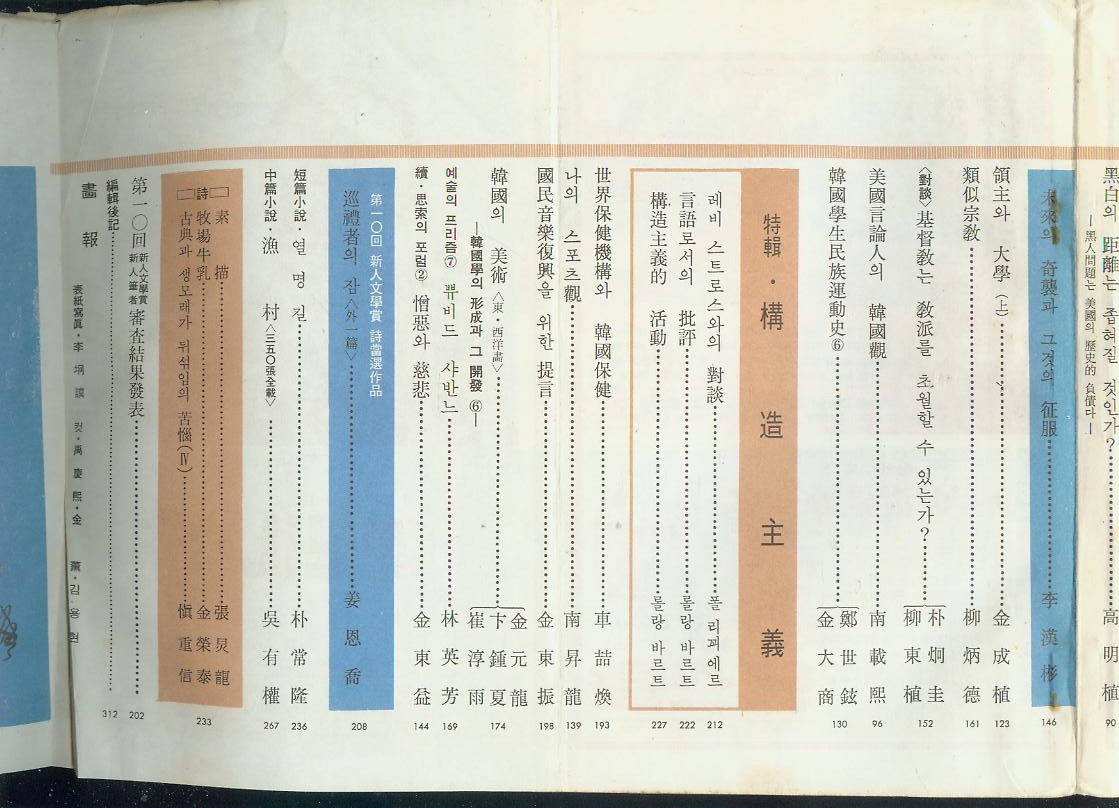 黑白의 距離는 좁혀질 것인가? 高明植 90
―黑人問題는 美國의 歷史的 負債다―
未來의 奇襲과 그것의 征服 李漢彬 146
領主와 大學(上) 金成植 123
類似宗敎 柳炳德 161
〈對談〉基督敎는 敎派를 초월할 수 있는가? 朴炯圭 柳東植 152
美國言論人의 韓國觀 南載熙 96
韓國學生民族運動史⑥ 鄭世鉉 金大商 130
特輯・構造主義
레비 스트로스와의 對談 폴 리꾀에르 212
言語로서의 批評 롤랑 바르트 222
構造主義的 活動 롤랑 바르트 227
世界保健機構와 韓國保健 車喆煥 193
나의 스포츠觀 南昇龍 139
國民音樂復興을 위한 提言 金東振 198
韓國의 美術〈東・西洋畵〉 金元龍 卞鍾夏 崔淳雨 174
―韓國學의 形成과 그 開發 ⑥―
예술의 프리즘⑦ 쀼비드 샤반느 林英芳 169
續・思索의 포럼② 憎惡와 慈悲 金東益 144
第一〇回 新人文學賞 詩當選作品
巡禮者의 잠〈外一篇〉 姜恩喬 208
短篇小說・열명길 朴常隆 236
中篇小說・漁村〈三五〇張全載〉 吳有權 267
詩
素描 張炅龍
牧場牛乳 金榮泰 233
古典과 생모래가 뒤섞임의 苦惱(Ⅳ) 愼重信
第一〇回 新人文學賞 新人筆者 審査結果發表 202
編輯後記 312
畵報
表紙寫眞・李坰謨 컷・禹慶熙・金薰・김용현